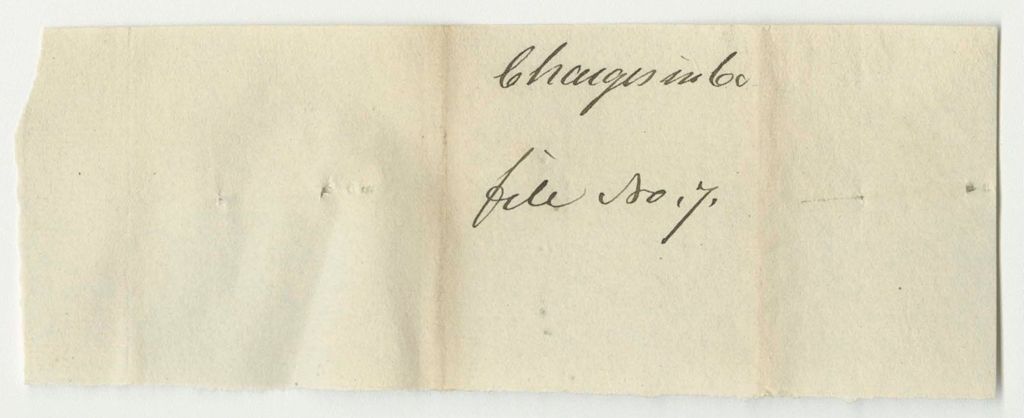 Charges in Co
file No. 7.